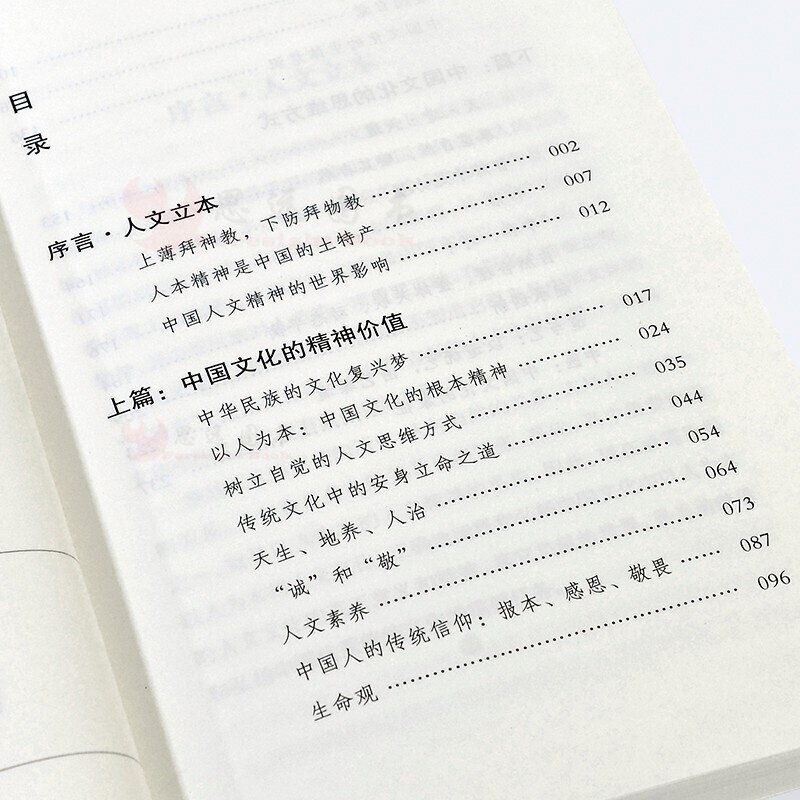 目录
序言·人文立本
上薄拜神教，下防拜物教 …… 002
人本精神是中国的土特产 …… 007
中国人文精神的世界影响 …… 012
上篇：中国文化的精神价值
中华民族的文化复兴梦 …… 017
以人为本：中国文化的根本精神 …… 024
树立自觉的人文思维方式 …… 035
传统文化中的安身立命之道 …… 044
天生、地养、人治 …… 054
“诚”和“敬” …… 064
人文素养 …… 073
中国人的传统信仰：报本、感恩、敬畏 …… 087
生命观 …… 096